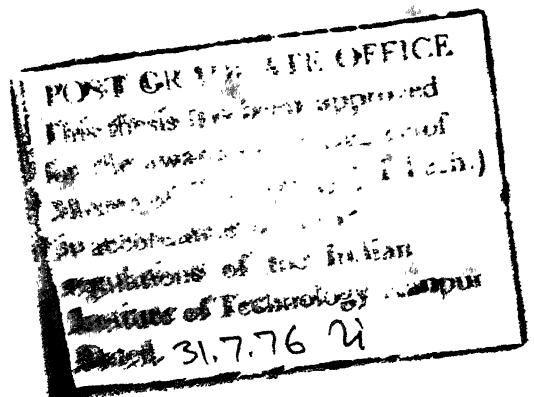 POST GRADUATE OFFICE
This thesis has been approved
for the award of
Master of (M.Tech.)
in accordance
regulations of the Indian
Institute of Technology Kanpur
Dated. 31.7.76